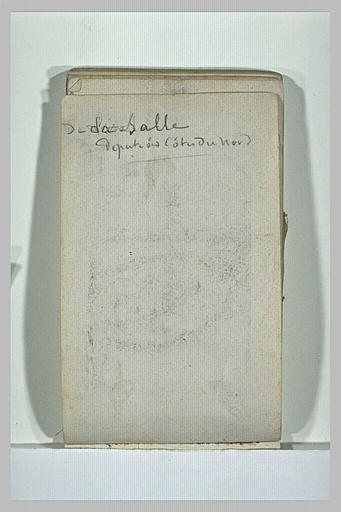 De La Salle
député des Côtes du Nord